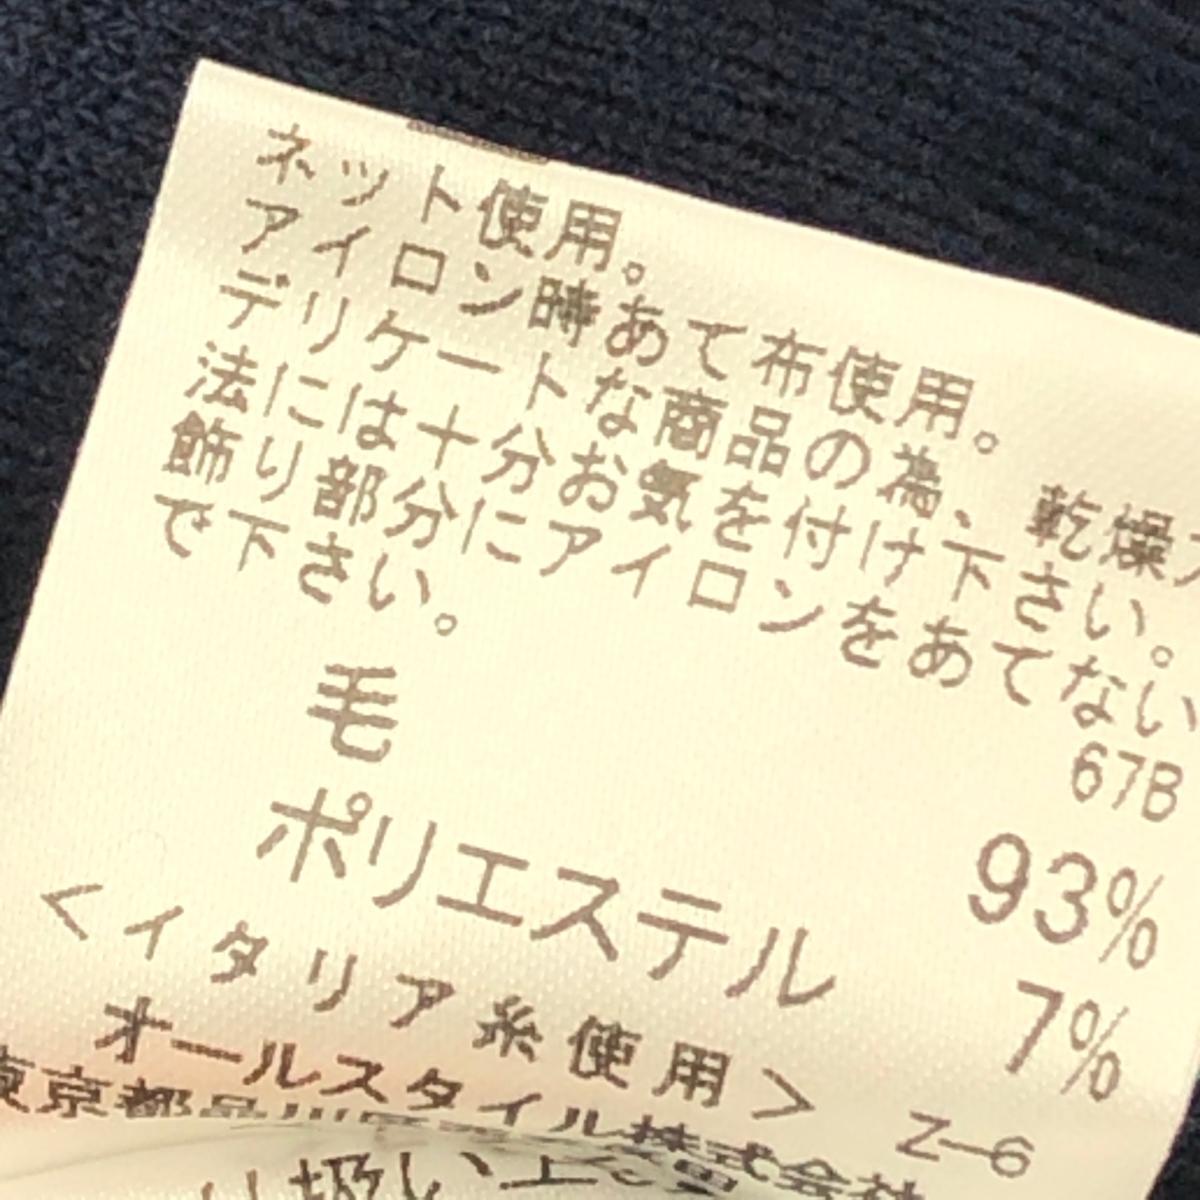 ネット使用。
アイロン時あて布使用。
デリケートな商品の為、乾燥
法には十分お気を付け下さい。
飾り部分にアイロンをあてない
で下さい。
67B
毛 93%
ポリエステル 7%
<イタリア糸使用>
Z-6
オールスタイル株式会社
東京都品川区
扱い上